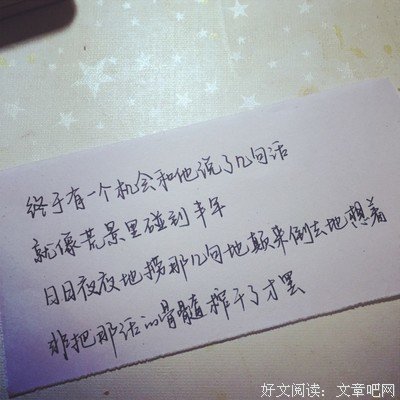 终于有一个机会和他说了几句话
就像荒景里碰到丰年
日日夜夜地捞那几句地颠来倒去地想着
非把那话的骨髓榨干了才罢
好文阅读：文章吧网